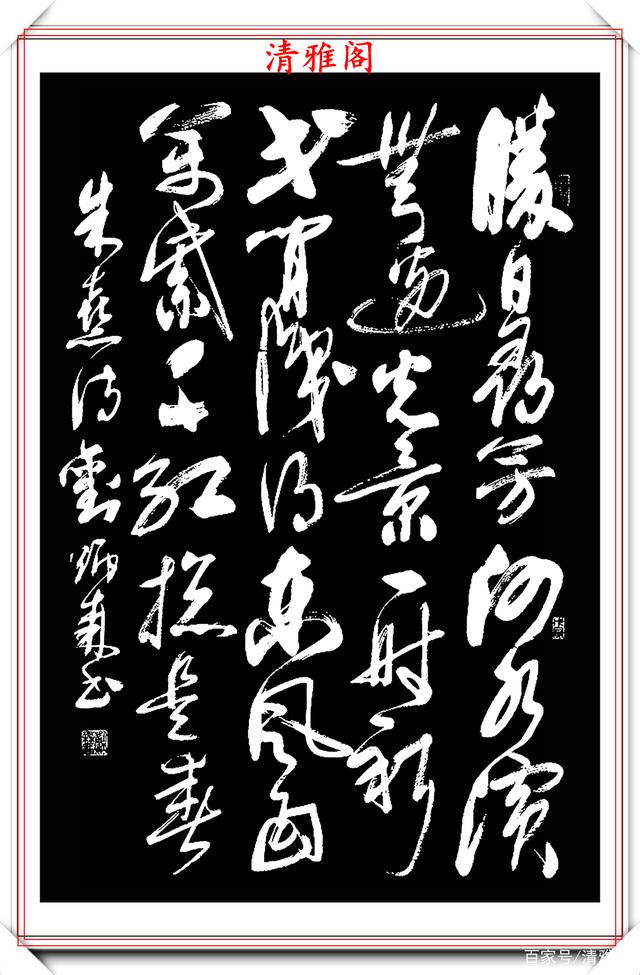 清雅阁
勝日尋芳泗水濱
無邊光景一時新
等閒識得東風面
萬紫千紅總是春
朱熹詩劉炳森書
百家号/清雅